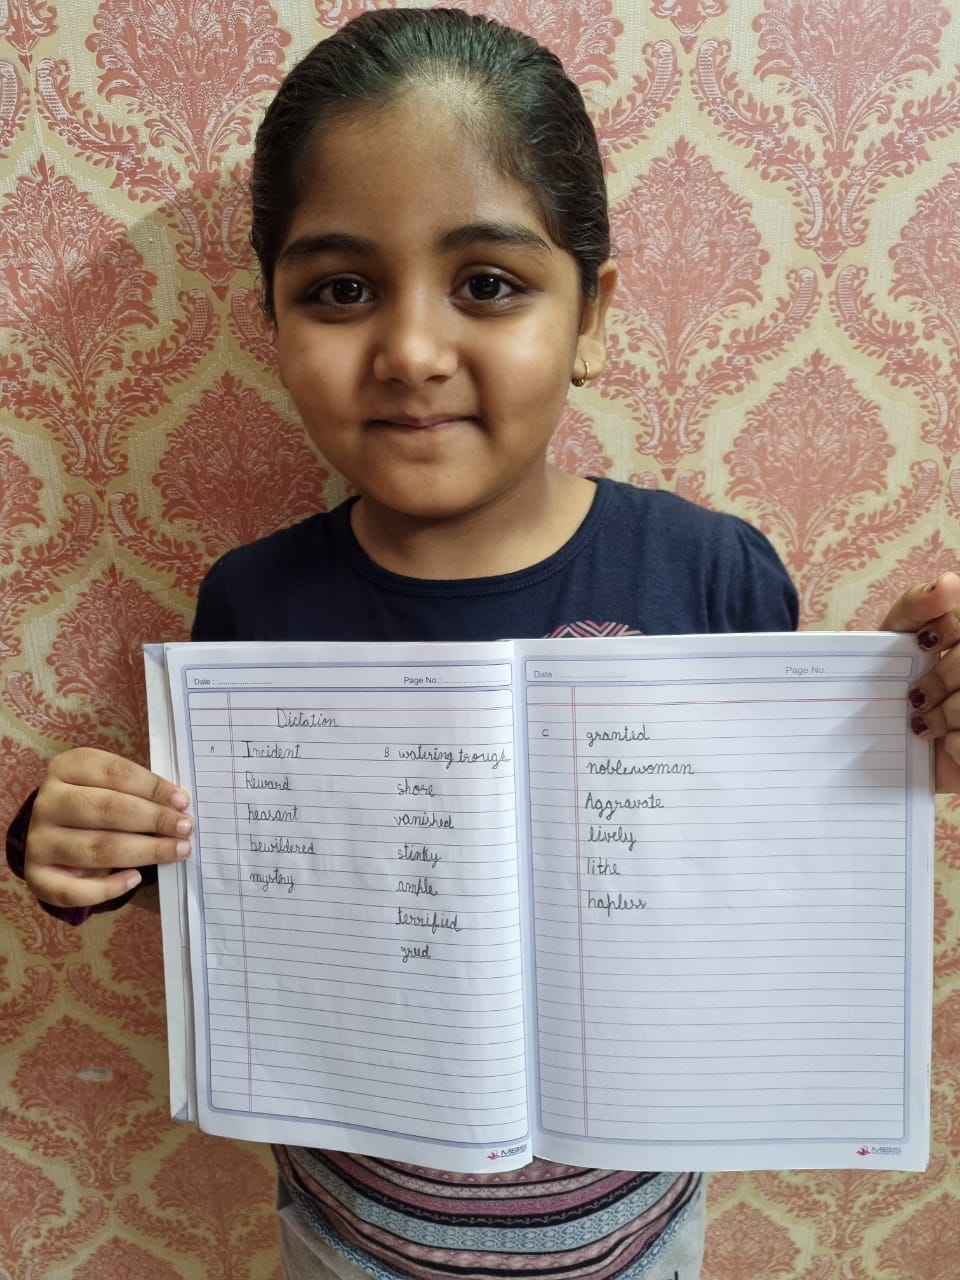 Date :
Page No.:
Dictation
A Incident
Reward
peasant
bewildered
mystry
B watering trough
shore
vanished
stinky
ample
terrified
greed
MBS
Date :
Page No.:
C granted
noblewoman
Aggravate
lively
lithe
hapless
MBS